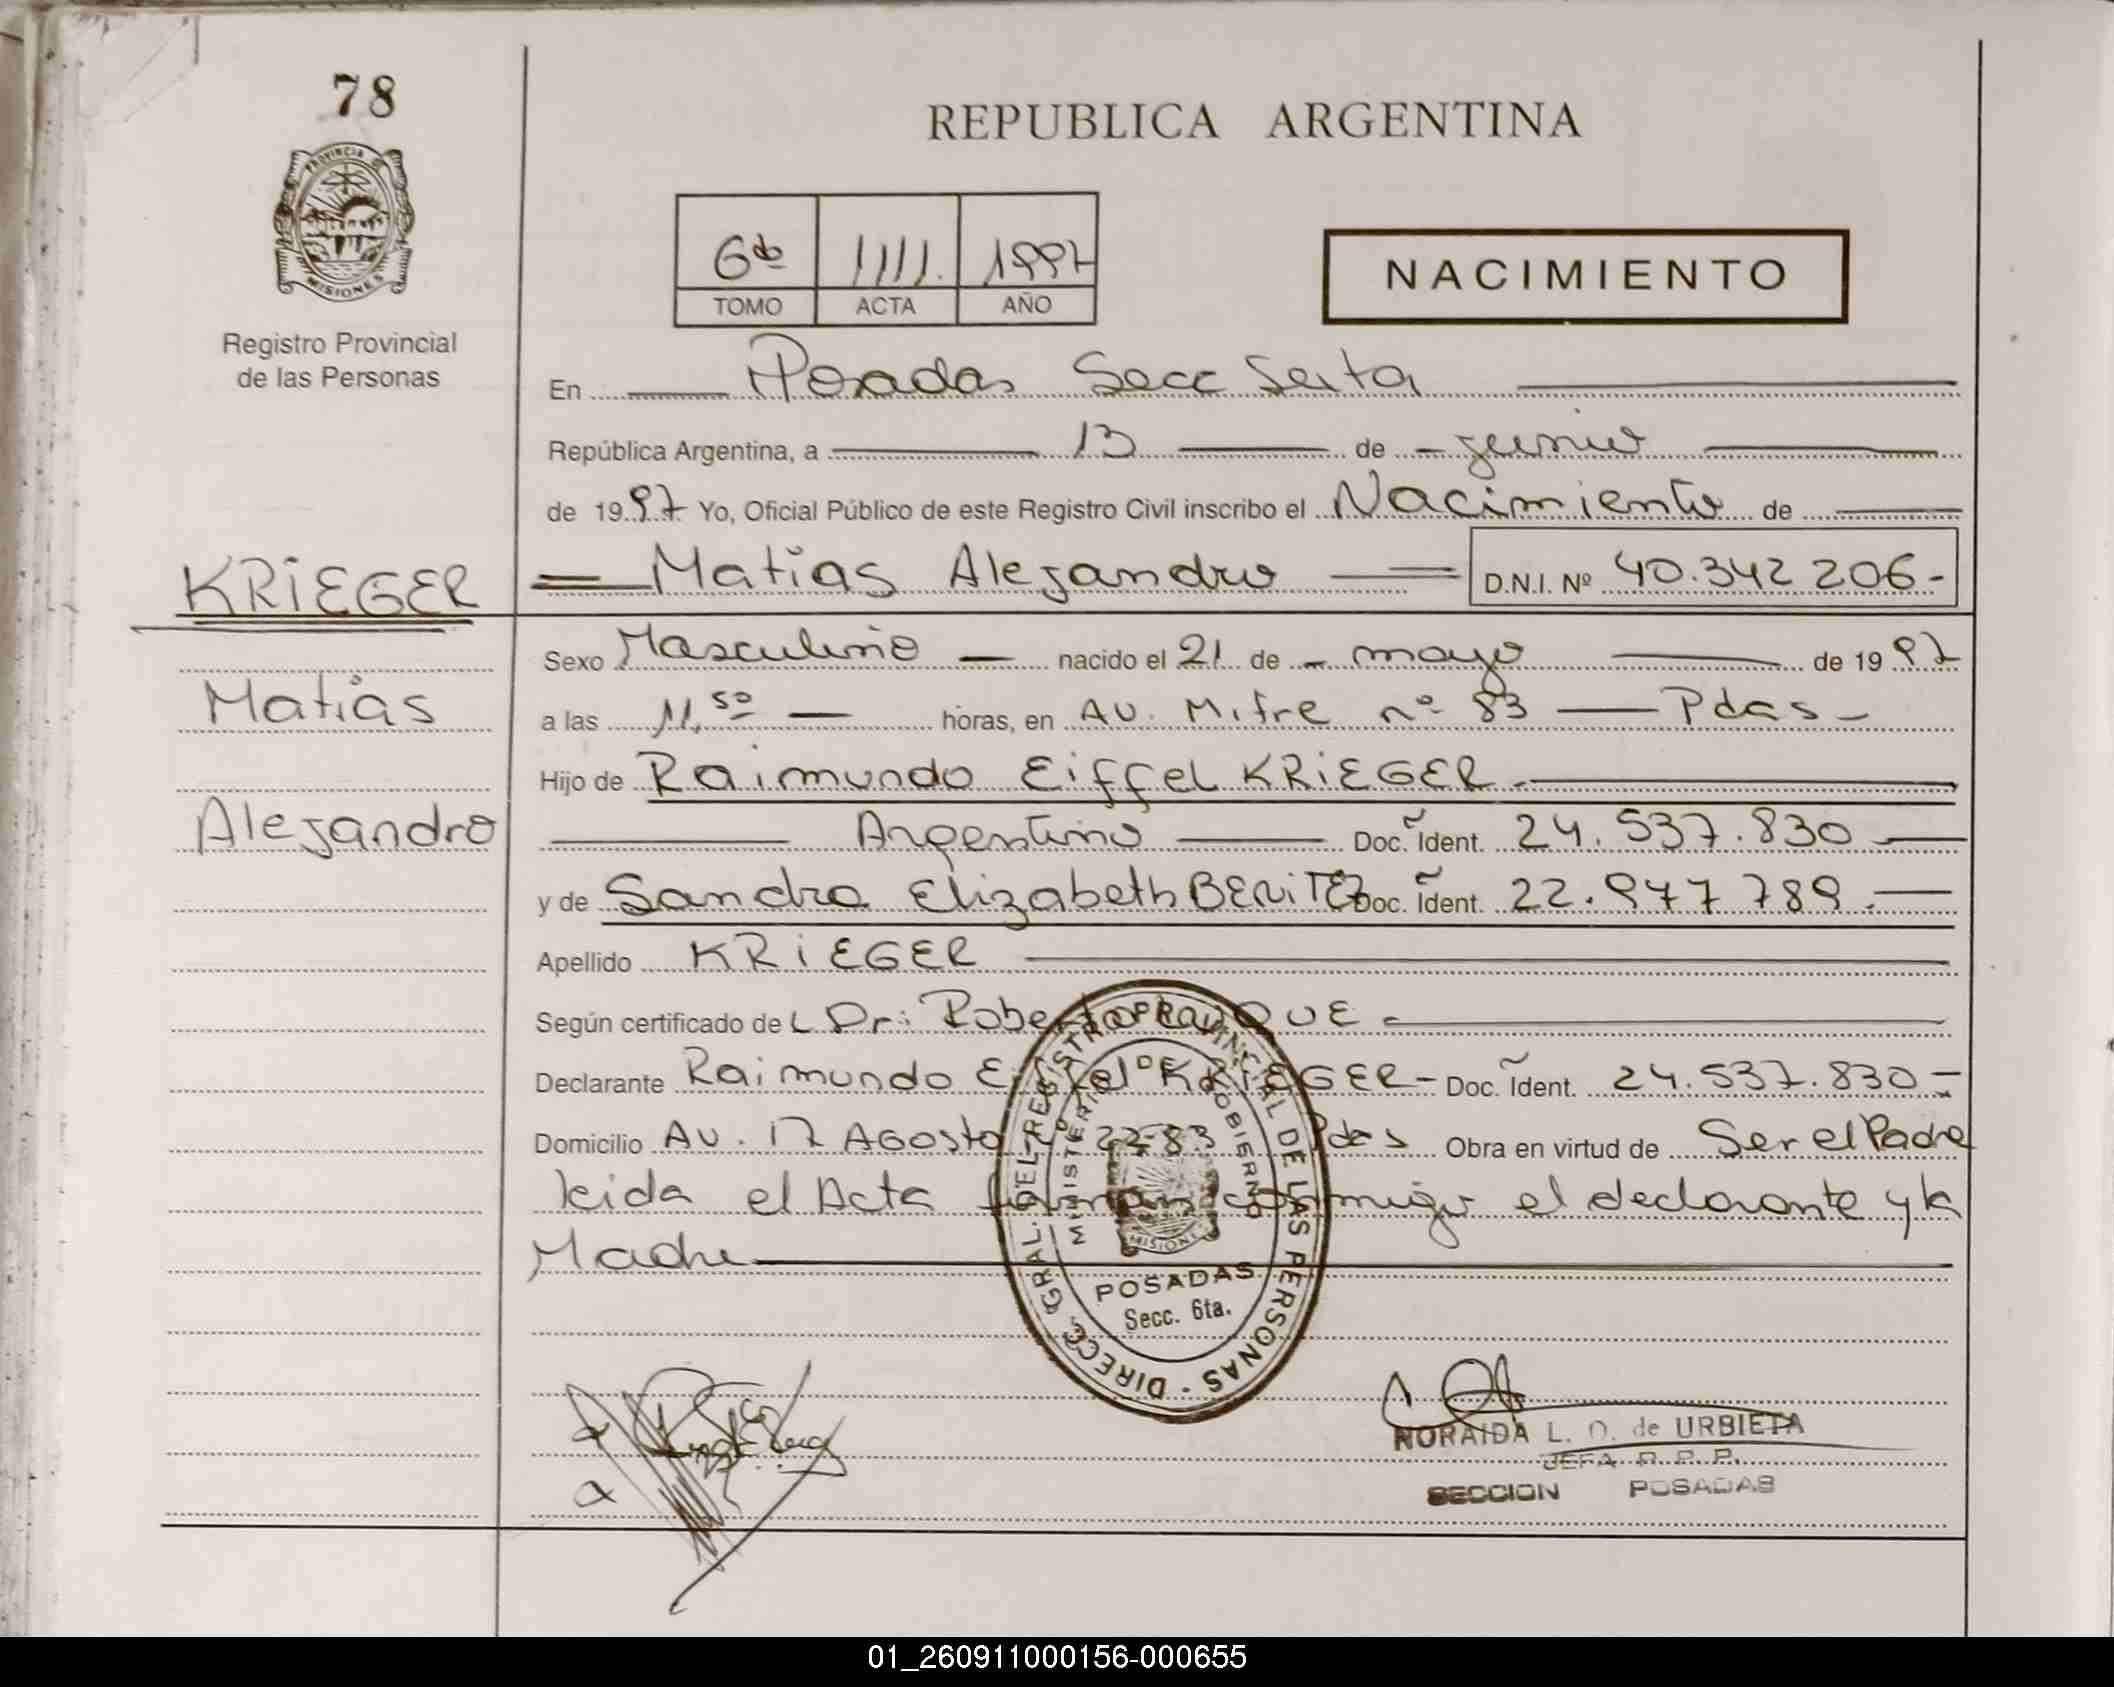 78
REPUBLICA ARGENTINA
PROVINCIA DE
MISIONES
6to 1111. 1997
TOMO ACTA AÑO
NACIMIENTO
Registro Provincial
de las Personas
En Posadas Secc Sexta
República Argentina, a 13 de junio
de 1997 Yo, Oficial Público de este Registro Civil inscribo el Nacimiento de
KRiEGER
Matias Alejandro D.N.I. Nº 40.342 206.-
Sexo Masculino nacido el 21 de mayo de 1997
Matias
a las 11,50 horas, en AV. Mitre nº 83 — Pdas -
Hijo de Raimundo Eiffel KRiEGER.
Alejandro
Argentino Doc. Ident. 24.537.830
y de Sandra Elizabeth BENiTEZ Doc. Ident. 22.947 789.
Apellido KRiEGER
Según certificado del Dr: Roberto
Declarante Raimundo Eiffel KRiEGER- Doc. Ident. 24.537.830-
Domicilio AV. 17 AGosto 2283 Pdas Obra en virtud de Ser el Padre
leida el Acta firman conmigo el declarante y la
Madre
DIRECC. GRAL. DEL REGISTRO PROVINCIAL DE LAS PERSONAS
MINISTERIO DE GOBIERNO
MISIONES
POSADAS
Secc. 6ta.
NORAIDA L. O. de URBIETA
JEFA R. P. P.
SECCION POSADAS
01_260911000156-000655